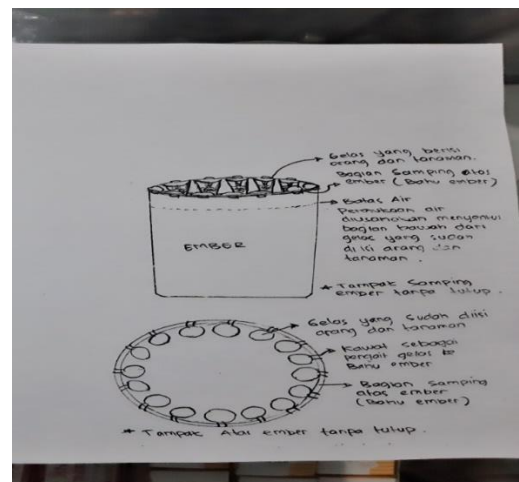 Gelas yang berisi
arang dan tanaman.
Bagian Samping atas
ember (Bahu ember)
Batas Air
Permukaan air
diusahakan menyentuh
bagian bawah dari
gelas yang sudah
di isi arang dan
tanaman.
EMBER
* Tampak Samping
ember tanpa tutup.
Gelas yang sudah diisi
arang dan tanaman
Kawat sebagai
pengait gelas ke
Bahu ember
Bagian samping
atas ember
(Bahu ember)
* Tampak Atas ember tanpa tutup.